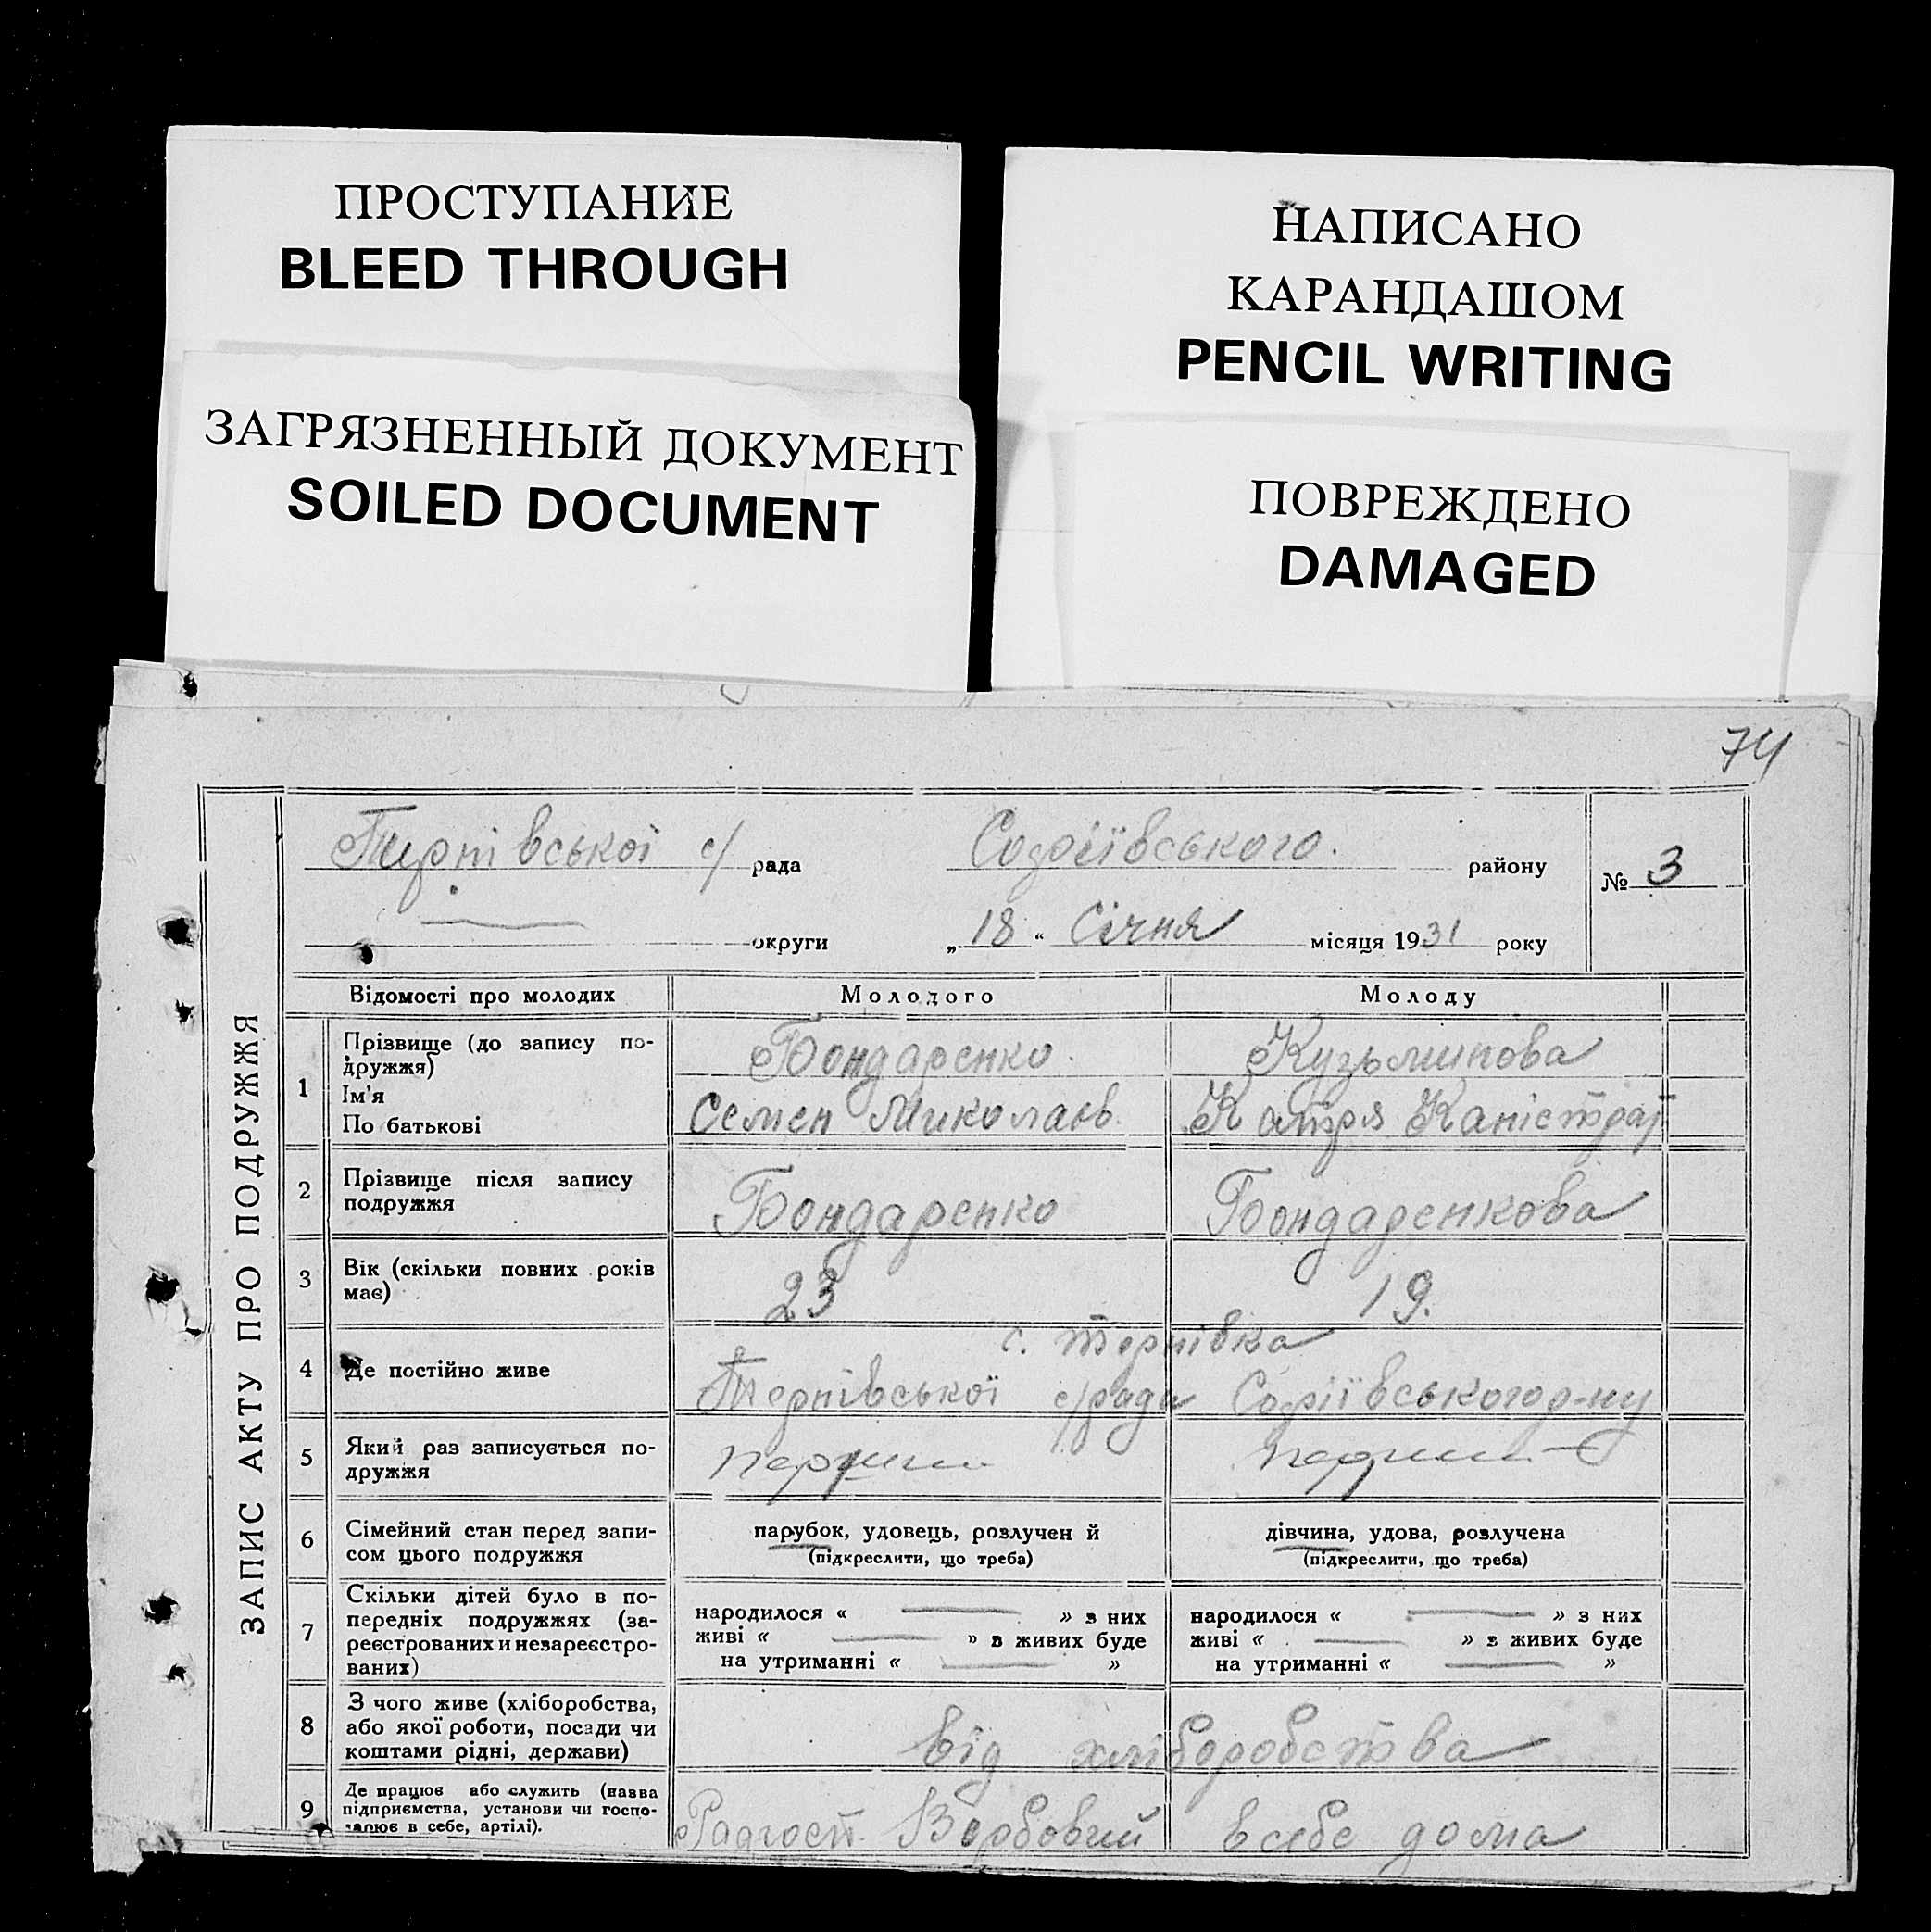 ПРОСТУПАНИЕ
BLEED THROUGH
ЗАГРЯЗНЕННЫЙ ДОКУМЕНТ
SOILED DOCUMENT
НАПИСАНО
КАРАНДАШОМ
PENCIL WRITING
ПОВРЕЖДЕНО
DAMAGED
74
ЗАПИС АКТУ ПРО ПОДРУЖЖЯ
Тернівської с/ рада Софіївського. району № 3
округи „ 18 “ Січня місяця 1931 року
Відомості про молодих Молодого Молоду
1 Прізвище (до запису по-
дружжя) Бондаренко. Кузьминова
Ім'я
По батькові Семен Миколаєв. Катря Каністрат
2 Прізвище після запису
подружжя Бондаренко Бондаренкова
3 Вік (скільки повних років
має) 23 19.
с. Тернівка
4 Де постійно живе Тернівської с/ради Софіївського р-ну
5 Який раз записується по-
дружжя
6 Сімейний стан перед запи- парубок, удовець, розлучен й дівчина, удова, розлучена
сом цього подружжя (підкреслити, що треба) (підкреслити, що треба)
7 Скільки дітей було в по-
передніх подружжях (за-
реєстрованих и незареєстро-
ваних)
народилося « » з них
живі « » в живих буде
на утриманні « »
народилося « » з них
живі « » з живих буде
на утриманні « »
8 З чого живе (хліборобства,
або якої роботи, посади чи
коштами рідні, держави) від хліборобства
9 Де працює або служить (назва
підприємства, установи чи госпо-
дарює в себе, артілі). Радгосп. Вербовий в себе дома